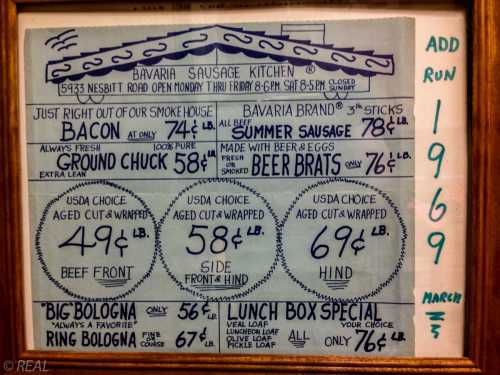 BAVARIA SAUSAGE KITCHEN ®
5933 NESBITT ROAD OPEN MONDAY THRU FRIDAY 8-6PM. SAT 8-5PM. CLOSED SUNDAY
JUST RIGHT OUT OF OUR SMOKE HOUSE
BACON AT ONLY 74¢ LB.
BAVARIA BRAND® 3 lb STICKS
ALL BEEF SUMMER SAUSAGE 78¢ LB.
ALWAYS FRESH 100% PURE
GROUND CHUCK 58¢ LB.
EXTRA LEAN
MADE WITH BEER & EGGS
FRESH OR SMOKED BEER BRATS ONLY 76½¢ LB.
USDA CHOICE
AGED CUT & WRAPPED
49¢ LB.
BEEF FRONT
USDA CHOICE
AGED CUT & WRAPPED
58¢ LB.
SIDE
FRONT & HIND
USDA CHOICE
AGED CUT & WRAPPED
69¢ LB.
HIND
"BIG" BOLOGNA ONLY 56¢ LB.
"ALWAYS A FAVORITE"
RING BOLOGNA FINE OR COURSE 67¢ LB.
LUNCH BOX SPECIAL
VEAL LOAF YOUR CHOICE
LUNCHEON LOAF
OLIVE LOAF ALL ONLY 76¢ LB.
PICKLE LOAF
ADD
RUN
1
9
6
9
MARCH
© REAL